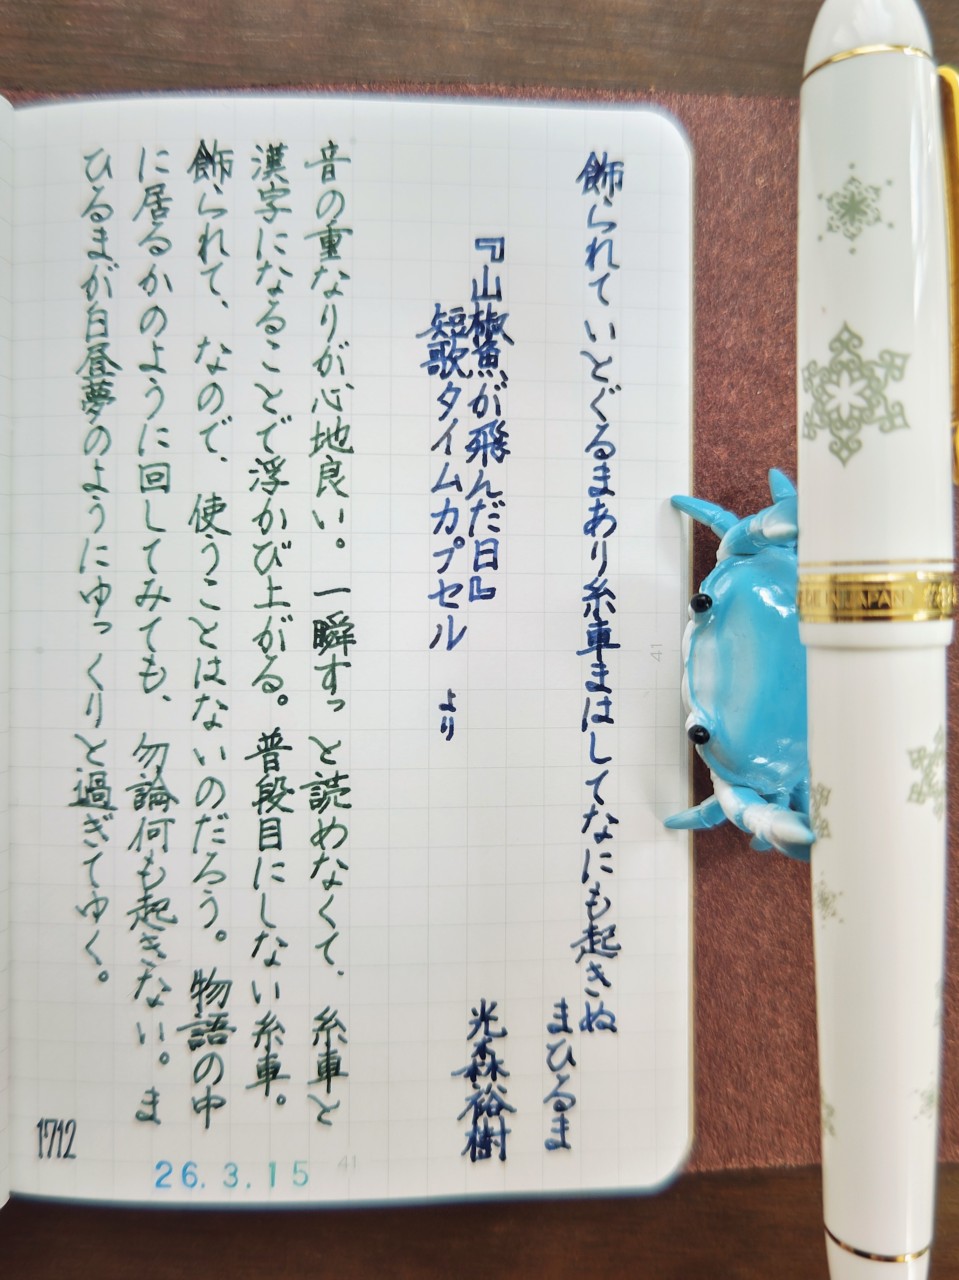 飾られて いとぐるまあり糸車まはしてなにも起きぬ
まひるま
『山椒魚が飛んだ日』
短歌タイムカプセル より
光森裕樹
音の重なりが心地良い。一瞬すっと読めなくて、糸車と
漢字になることで浮かび上がる。普段目にしない糸車。
飾られて、なので、使うことはないのだろう。物語の中
に居るかのように回してみても、勿論何も起きない。ま
ひるまが白昼夢のようにゆっくりと過ぎてゆく。
1712
26.3.15
41
41
DE IN JAPAN